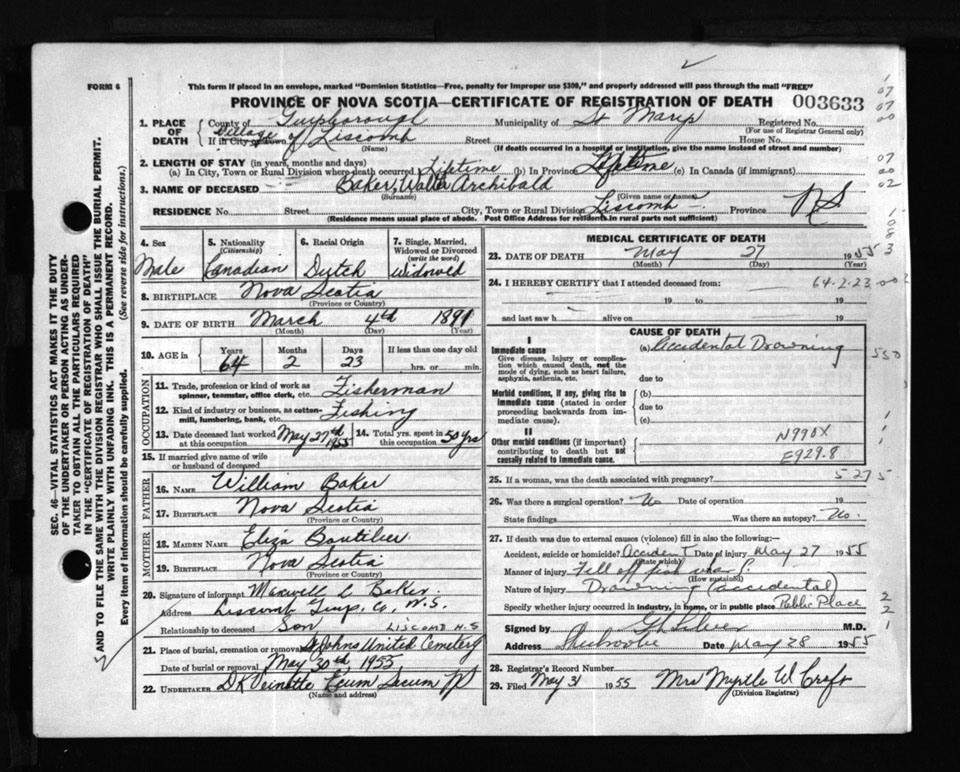 FORM 6
This form if placed in an envelope, marked "Dominion Statistics—Free, penalty for improper use $300," and properly addressed will pass through the mail "FREE"
PROVINCE OF NOVA SCOTIA—CERTIFICATE OF REGISTRATION OF DEATH 003633
1. PLACE OF DEATH
County of Guysborough Municipality of St Marys Registered No.
(For use of Registrar General only)
Village of Liscomb
If in City or Town (Name) Street House No.
(If death occurred in a hospital or institution, give the name instead of street and number)
2. LENGTH OF STAY (in years, months and days)
(a) In City, Town or Rural Division where death occurred Lifetime (b) In Province Lifetime (c) In Canada (if immigrant)
3. NAME OF DECEASED Baker, Walter Archibald
(Surname) (Given name or names)
RESIDENCE No. Street City, Town or Rural Division Liscomb Province N S
(Residence means usual place of abode. Post Office Address for residents in rural parts not sufficient)
4. Sex Male
5. Nationality (Citizenship) Canadian
6. Racial Origin Dutch
7. Single, Married, Widowed or Divorced (write the word) Widowed
8. BIRTHPLACE Nova Scotia
(Province or Country)
9. DATE OF BIRTH March 4th 1891
(Month) (Day) (Year)
10. AGE in Years 64 Months 2 Days 23 If less than one day old hrs. or min.
OCCUPATION
11. Trade, profession or kind of work as spinner, teamster, office clerk, etc. Fisherman
12. Kind of industry or business, as cotton-mill, lumbering, bank, etc. Fishing
13. Date deceased last worked at this occupation May 27th 1955 14. Total yrs. spent in this occupation 50 yrs
15. If married give name of wife or husband of deceased
FATHER
16. Name William Baker
17. Birthplace Nova Scotia
(Province or Country)
MOTHER
18. Maiden Name Eliza Boutilier
19. Birthplace Nova Scotia
(Province or Country)
20. Signature of informant Maxwell C Baker
Address Liscomb Guys. Co, N.S.
Relationship to deceased Son LISCOMB N.S
21. Place of burial, cremation or removal St Johns United Cemetery
Date of burial or removal May 30th 1955
22. UNDERTAKER D K Veinotte Ecum Secum NS
(Name and address)
MEDICAL CERTIFICATE OF DEATH
23. DATE OF DEATH May 27 1955
(Month) (Day) (Year)
24. I HEREBY CERTIFY that I attended deceased from: 64-2-23
19 to 19
and last saw h alive on 19
CAUSE OF DEATH
I
Immediate cause (a) Accidental Drowning
Give disease, injury or complication which caused death, not the mode of dying, such as heart failure, asphyxia, asthenia, etc.
due to
Morbid conditions, if any, giving rise to immediate cause (stated in order proceeding backwards from immediate cause).
(b)
due to
(c)
II
Other morbid conditions (if important) contributing to death but not causally related to immediate cause.
N990X
E929.8
25. If a woman, was the death associated with pregnancy? 527 5
26. Was there a surgical operation? No Date of operation 19
State findings Was there an autopsy? No.
27. If death was due to external causes (violence) fill in also the following:—
Accident, suicide or homicide? Accident Date of injury May 27 1955
(State which)
Manner of injury Fell off fish wharf.
(How sustained)
Nature of injury Drowning (accidental)
Specify whether injury occurred in industry, in home, or in public place Public Place
Signed by M.D.
Address Sherbrooke Date May 28 1955
28. Registrar's Record Number
29. Filed May 31 1955 Mrs Myrtle W Croft
(Division Registrar)
SEC. 46—VITAL STATISTICS ACT MAKES IT THE DUTY
OF THE UNDERTAKER OR PERSON ACTING AS UNDER-
TAKER TO OBTAIN ALL THE PARTICULARS REQUIRED
IN THE "CERTIFICATE OF REGISTRATION OF DEATH"
AND TO FILE THE SAME WITH THE DIVISION REGISTRAR WHO SHALL ISSUE THE BURIAL PERMIT.
WRITE PLAINLY WITH UNFADING INK. THIS IS A PERMANENT RECORD.
Every item of information should be carefully supplied. (See reverse side for instructions.)